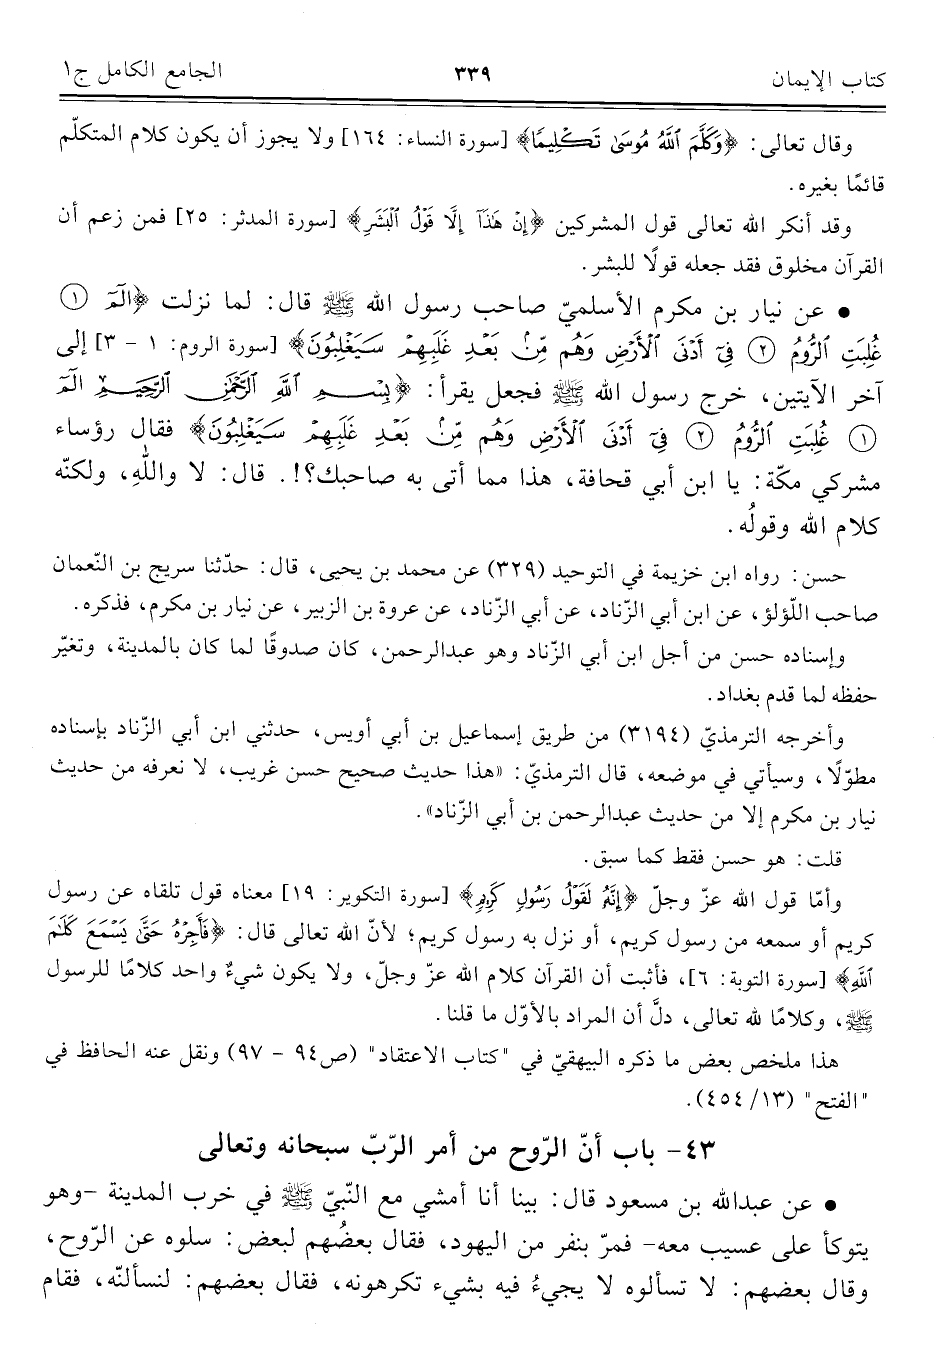 كتاب الإيمان ٣٣٩ الجامع الكامل ج١
وقال تعالى: ﴿وَكَلَّمَ ٱللَّهُ مُوسَىٰ تَكْلِيمًا﴾ [سورة النساء: ١٦٤] ولا يجوز أن يكون كلام المتكلّم
قائمًا بغيره.
وقد أنكر الله تعالى قول المشركين ﴿إِنْ هَٰذَآ إِلَّا قَوْلُ ٱلْبَشَرِ﴾ [سورة المدثر: ٢٥] فمن زعم أن
القرآن مخلوق فقد جعله قولًا للبشر.
• عن نيار بن مكرم الأسلميّ صاحب رسول الله ﷺ قال: لما نزلت ﴿الٓمٓ ١
غُلِبَتِ ٱلرُّومُ ٢ فِىٓ أَدْنَى ٱلْأَرْضِ وَهُم مِّنۢ بَعْدِ غَلَبِهِمْ سَيَغْلِبُونَ﴾ [سورة الروم: ١ - ٣] إلى
آخر الآيتين، خرج رسول الله ﷺ فجعل يقرأ: ﴿بِسْمِ ٱللَّهِ ٱلرَّحْمَٰنِ ٱلرَّحِيمِ الٓمٓ
١ غُلِبَتِ ٱلرُّومُ ٢ فِىٓ أَدْنَى ٱلْأَرْضِ وَهُم مِّنۢ بَعْدِ غَلَبِهِمْ سَيَغْلِبُونَ﴾ فقال رؤساء
مشركي مكّة: يا ابن أبي قحافة، هذا مما أتى به صاحبك؟!. قال: لا واللهِ، ولكنّه
كلام الله وقولُه.
حسن: رواه ابن خزيمة في التوحيد (٣٢٩) عن محمد بن يحيى، قال: حدّثنا سريج بن النّعمان
صاحب اللّؤلؤ، عن ابن أبي الزّناد، عن أبي الزّناد، عن عروة بن الزبير، عن نيار بن مكرم، فذكره.
وإسناده حسن من أجل ابن أبي الزّناد وهو عبدالرحمن، كان صدوقًا لما كان بالمدينة، وتغيّر
حفظه لما قدم بغداد.
وأخرجه الترمذيّ (٣١٩٤) من طريق إسماعيل بن أبي أويس، حدثني ابن أبي الزّناد بإسناده
مطوّلًا، وسيأتي في موضعه، قال الترمذيّ: «هذا حديث صحيح حسن غريب، لا نعرفه من حديث
نيار بن مكرم إلا من حديث عبدالرحمن بن أبي الزّناد».
قلت: هو حسن فقط كما سبق.
وأمّا قول الله عزّ وجلّ ﴿إِنَّهُۥ لَقَوْلُ رَسُولٍ كَرِيمٍ﴾ [سورة التكوير: ١٩] معناه قول تلقاه عن رسول
كريم أو سمعه من رسول كريم، أو نزل به رسول كريم؛ لأنّ الله تعالى قال: ﴿فَأَجِرْهُ حَتَّىٰ يَسْمَعَ كَلَٰمَ
ٱللَّهِ﴾ [سورة التوبة: ٦]، فأثبت أن القرآن كلام الله عزّ وجلّ، ولا يكون شيءٌ واحد كلامًا للرسول
ﷺ، وكلامًا لله تعالى، دلَّ أن المراد بالأوّل ما قلنا.
هذا ملخص بعض ما ذكره البيهقيّ في "كتاب الاعتقاد" (ص٩٤ - ٩٧) ونقل عنه الحافظ في
"الفتح" (١٣/ ٤٥٤).
٤٣- باب أنّ الرّوح من أمر الرّبّ سبحانه وتعالى
• عن عبدالله بن مسعود قال: بينا أنا أمشي مع النّبيّ ﷺ في خرب المدينة -وهو
يتوكأ على عسيب معه- فمرّ بنفر من اليهود، فقال بعضُهم لبعض: سلوه عن الرّوح،
وقال بعضهم: لا تسألوه لا يجيءُ فيه بشيء تكرهونه، فقال بعضهم: لنسألنّه، فقام